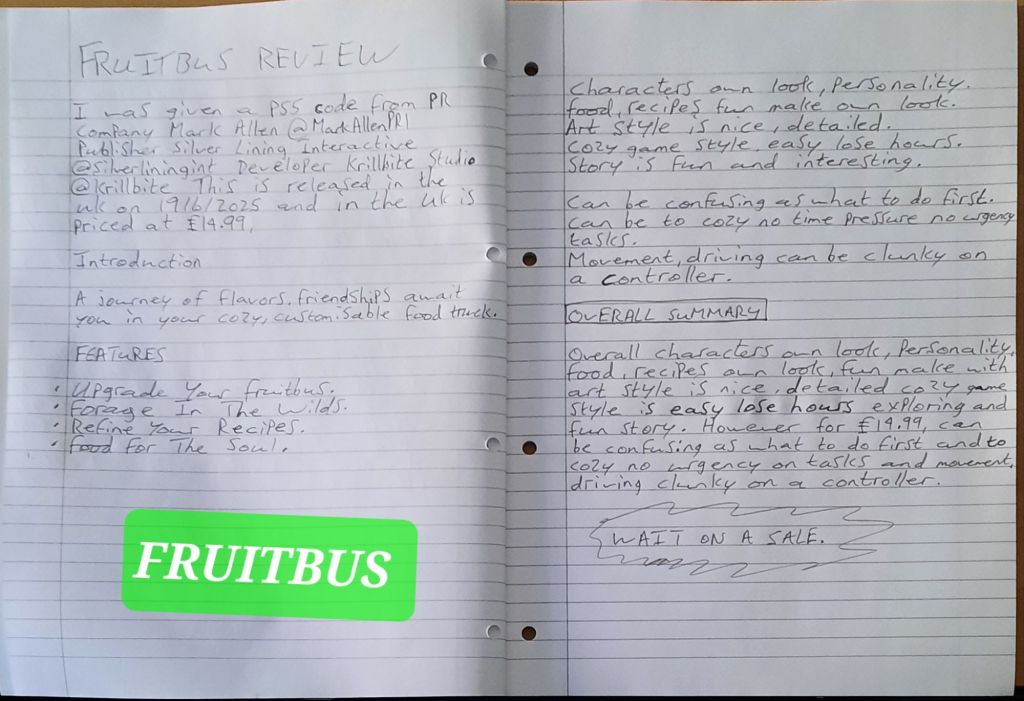 FRUITBUS REVIEW
I was given a PS5 code from PR
Company Mark Allen @MarkAllenPR1
Publisher Silver Lining Interactive
@Silverliningint Developer Krillbite Studio
@Krillbite This is released in the
uk on 19/6/2025 and in the uk is
Priced at £14.99,
Introduction
A journey of flavors, friendships await
you in your cozy, customisable food truck.
FEATURES
• Upgrade Your Fruitbus.
• Forage In The Wilds.
• Refine Your Recipes.
• Food For The Soul.
FRUITBUS
Characters own look, Personality.
food, recipes fun make own look.
Art style is nice, detailed.
Cozy game style, easy lose hours.
Story is fun and interesting.
Can be confusing as what to do first.
Can be to cozy no time pressure no urgency
tasks.
Movement, driving can be clunky on
a controller.
OVERALL SUMMARY
Overall characters own look, Personality,
food, recipes own look, fun make with
art style is nice, detailed cozy game
style is easy lose hours exploring and
fun story. However for £14.99, can
be confusing as what to do first and to
cozy no urgency on tasks and movement,
driving clunky on a controller.
WAIT ON A SALE.